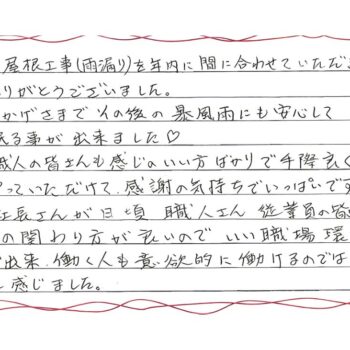 屋根工事(雨漏り)を年内に間に合わせていただき
りがとうございました。
かげさまでその後の暴風雨にも安心して
る事が出来ました♡
職人の皆さんも感じのいい方ばかりで手際良く
っていただけて、感謝の気持ちでいっぱいです
社長さんが日頃職人さん従業員の皆
の関わり方が良いのでいい職場環
出来、働く人も意欲的に働けるのでは
感じました。